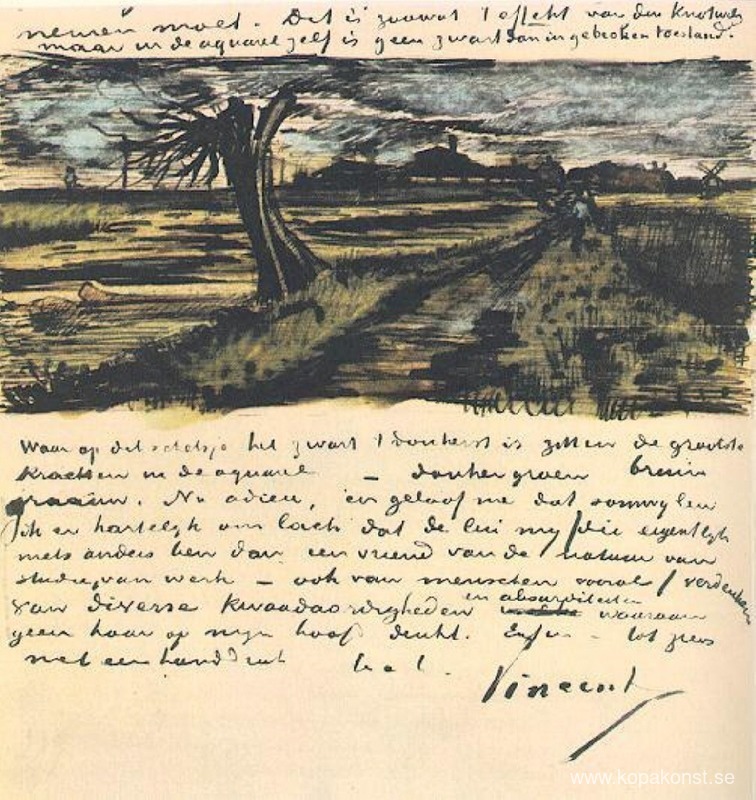 nemen moet. Dit is zoowat 't effekt van den Knotwilg
maar in de aquarel zelf is geen zwart dan in gebroken toestand.
Waar op dit schetsje het zwart 't donkerst is zitten de grootste
krachten in de aquarel – donkergroen bruin
graauw. Nu adieu, en geloof me dat somwylen
ik er hartelyk om lach dat de lui my /die eigentlyk
niets anders ben dan een vriend van de natuur van
studie, van werk – ook van menschen vooral/ verdenken
van diverse kwaadaardigheden en absurditeiten waaraan
geen haar op myn hoofd denkt. Enfin – tot ziens
met een handdruk
Vincent
www.kopakonst.se